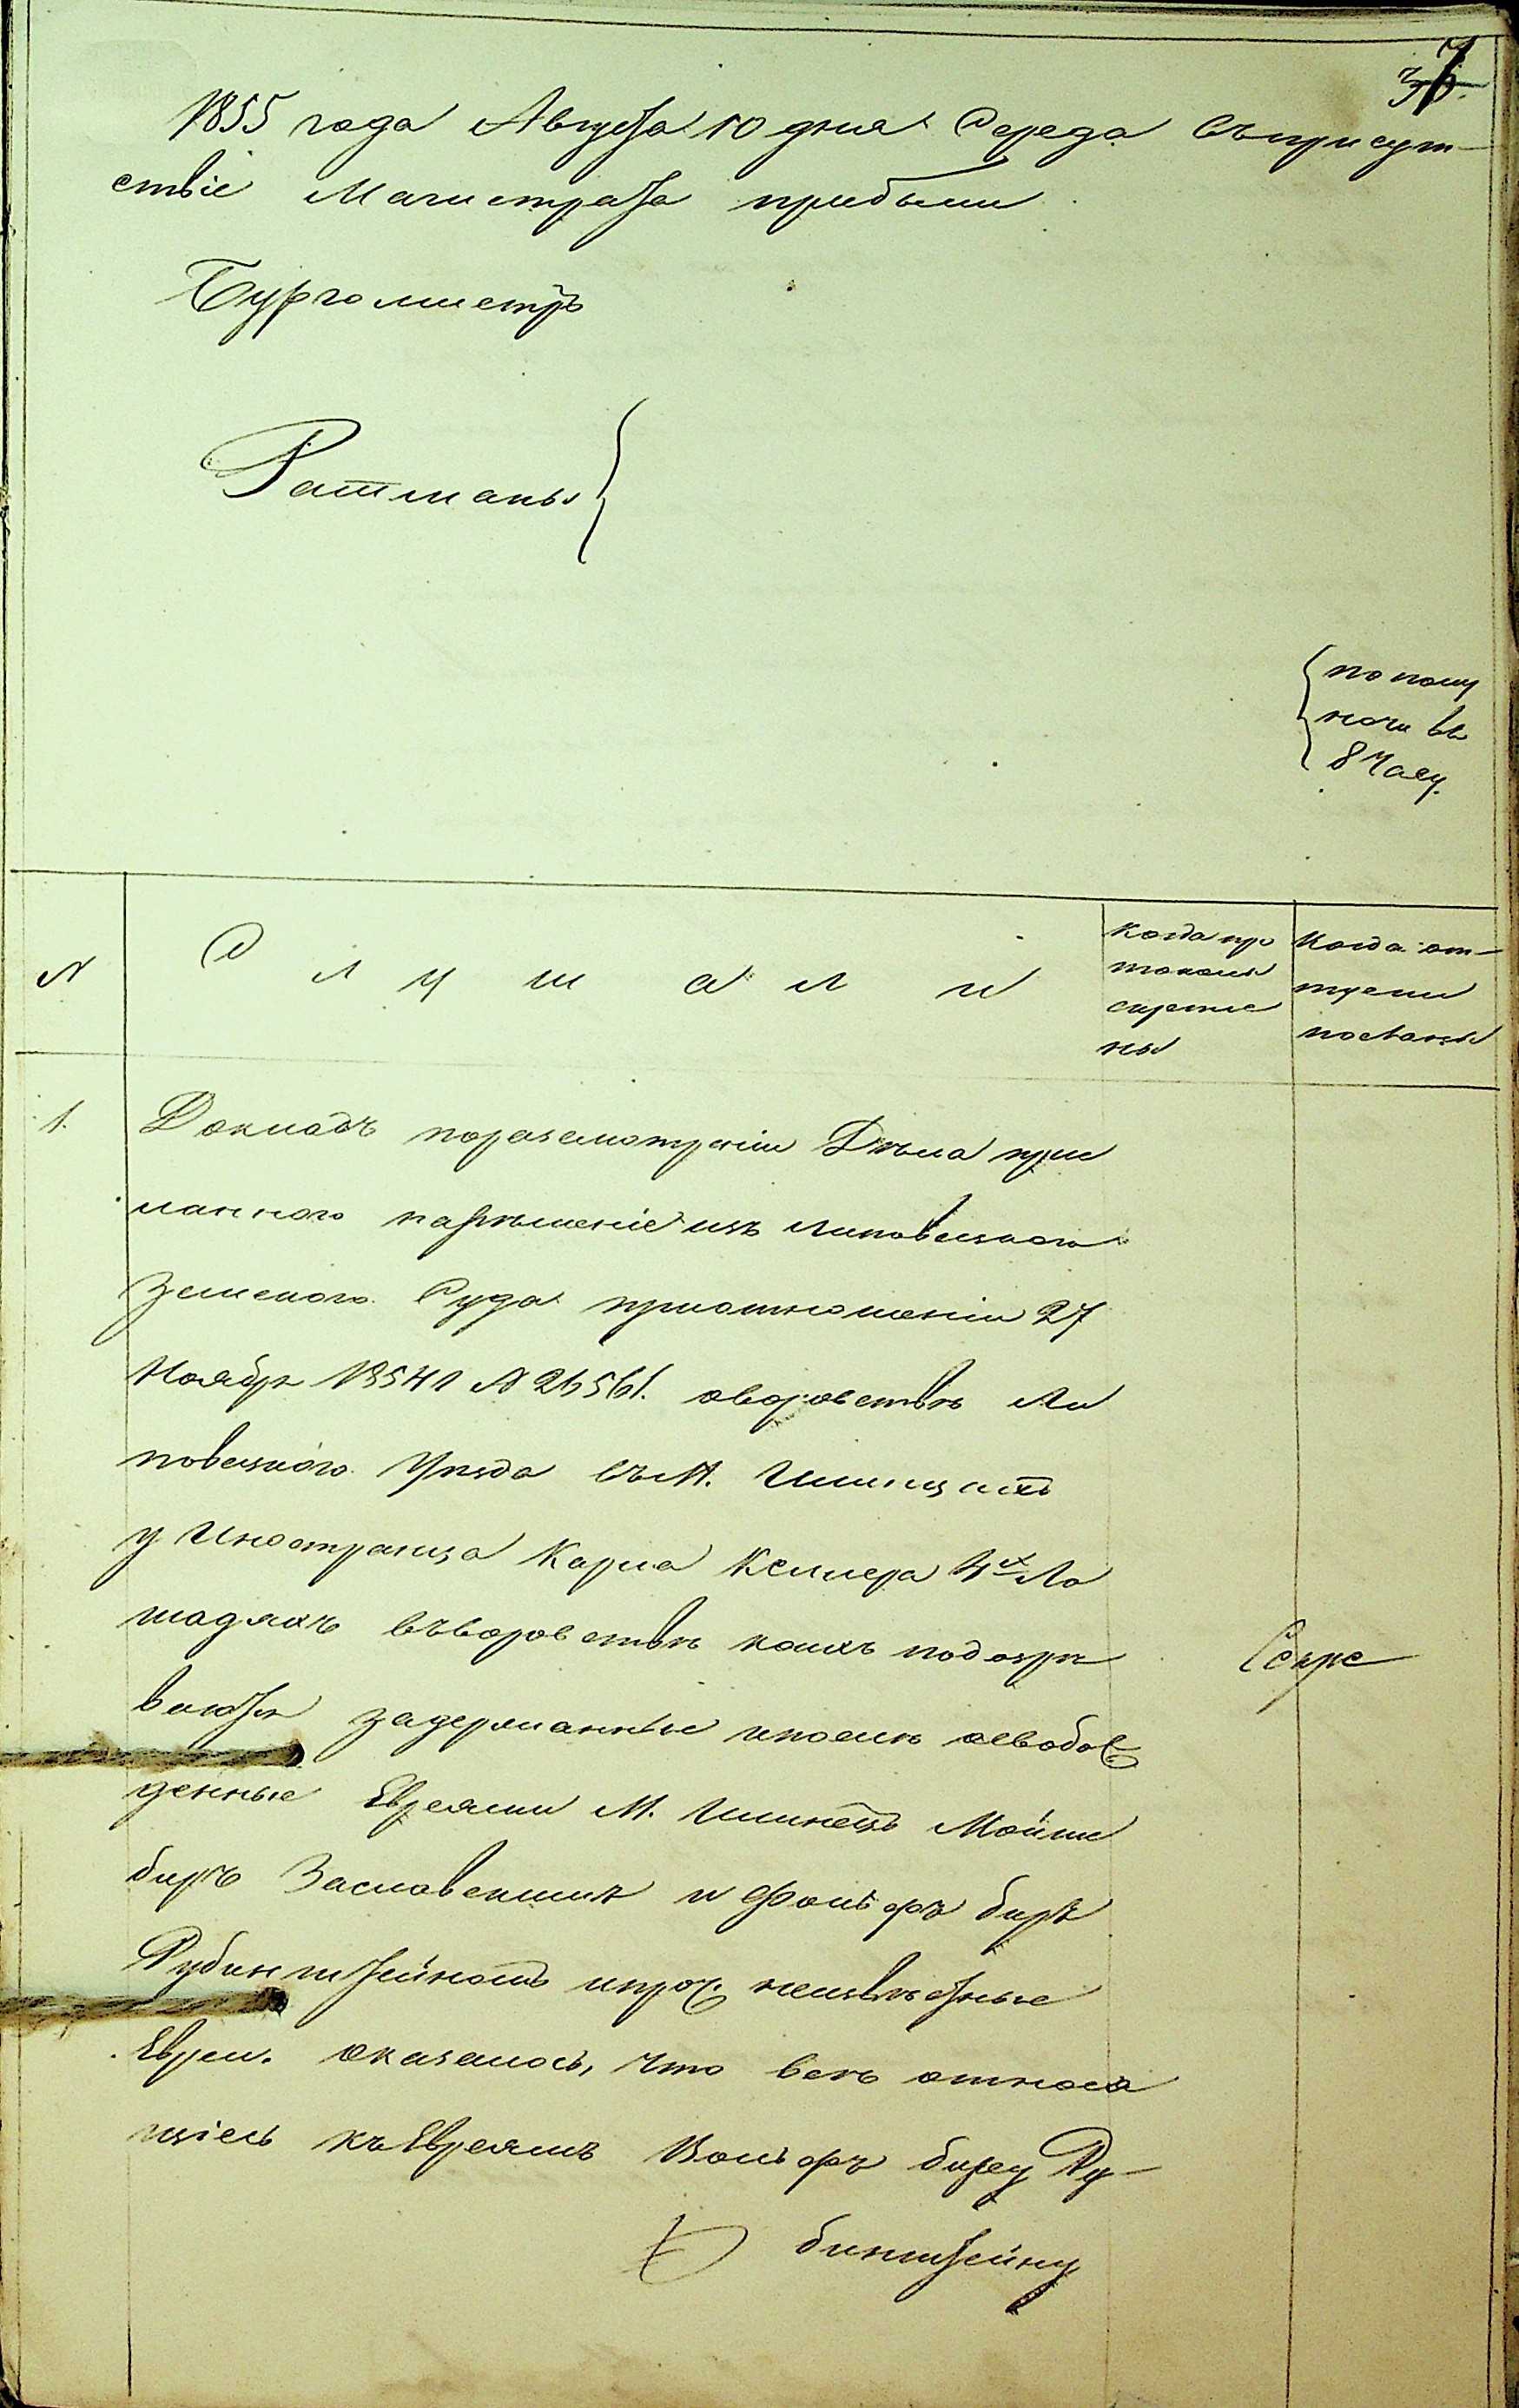 37
1855 года Августа 10 дня Середа въ присут-
ствіе Магистрата прибыли
Бургомистръ
Ратманы
по полу
ночи въ
8 часу.
N
С л у ш а л и
Когда про
токолы
скрепле
ны
Когда от-
пуски
посланы
1.
Докладъ поразсмотреніи Дѣла при
сланного наРѣшеніе изъ Липовецкого
Земского Суда приотношеніи 27
Ноября 1854 г N 26561. оворовствѣ Ли
повецкого Уѣзда въ М. Илинцахъ
у Иностранца Карла Келлера 4х Ло
шадяхъ въворовствѣ коихъ подозрѣ
ваются задержанные ипослѣ освобож
денные Евреями М. Илинецъ Мошко
беръ Заславскимъ и Фольфъ беръ
Рубинштейномъ ипроч. неизвѣстные
Евреи. оказалось, что всѣ относя
щіесь къ Евреямъ Вольфъ беру Ру-
бинштейну
Секре